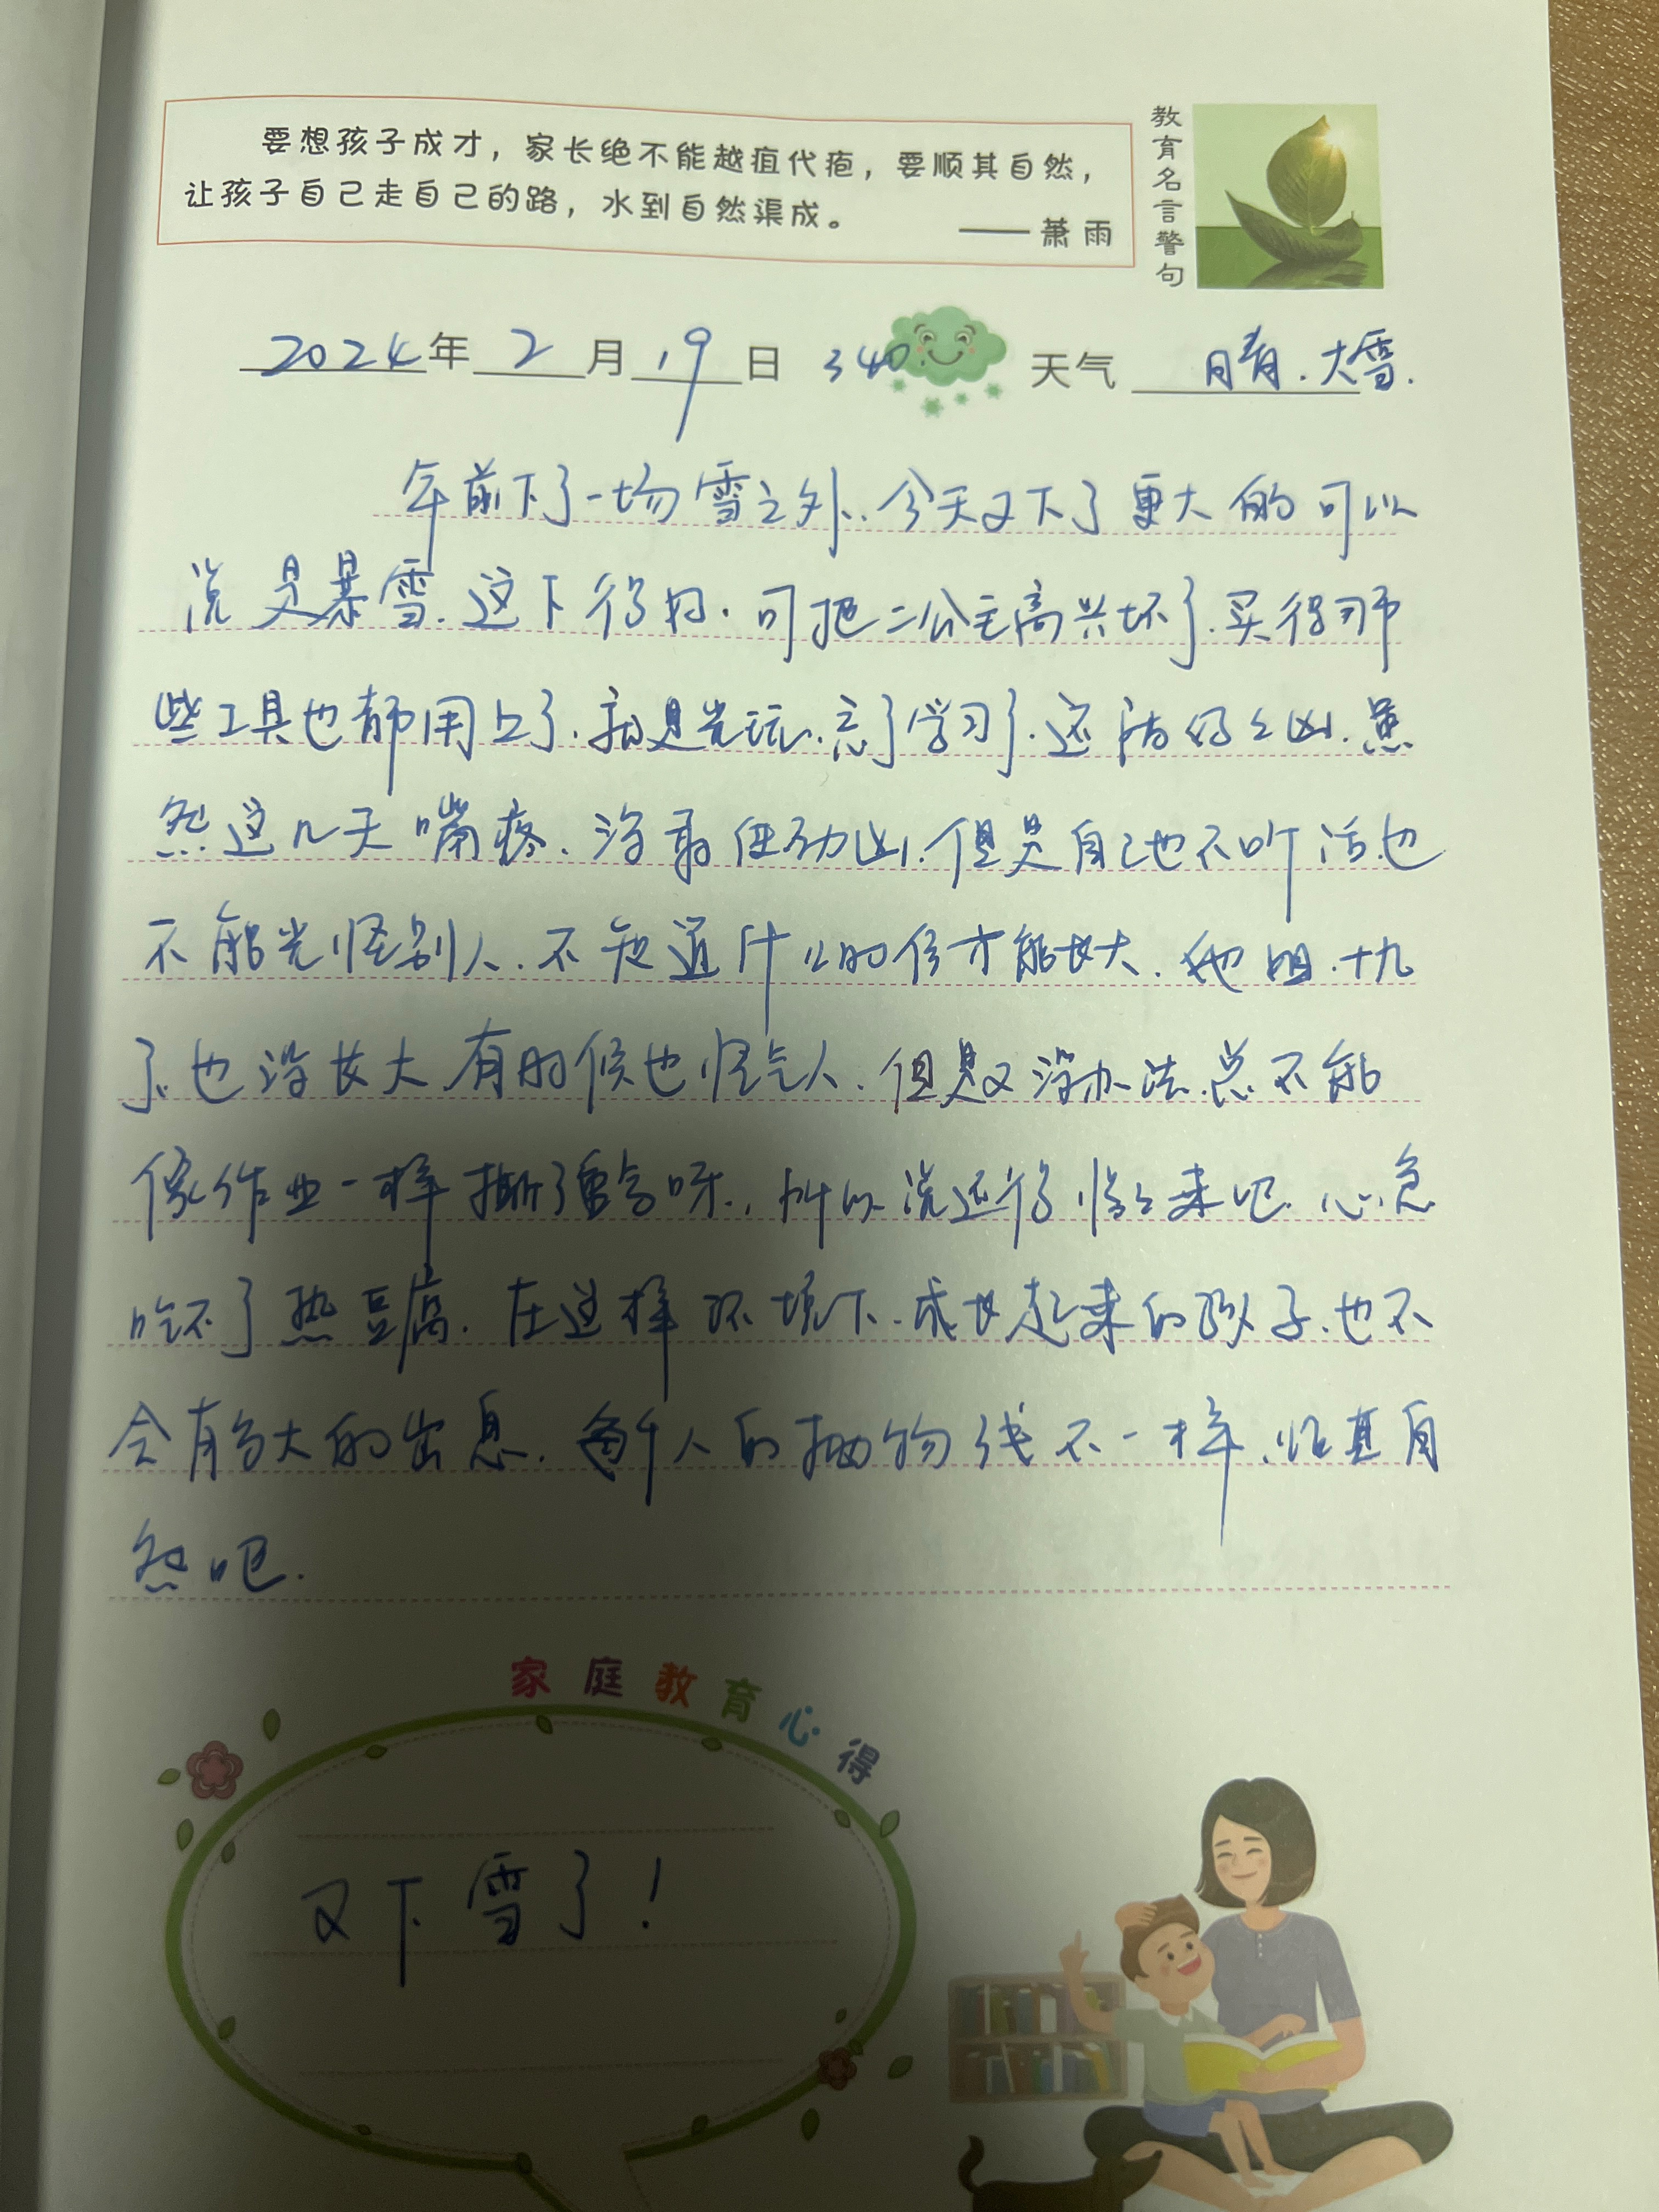 要想孩子成才，家长绝不能越疽代疱，要顺其自然，
让孩子自己走自己的路，水到自然渠成。
——萧雨
教育名言警句
2024年2月19日 340 天气 晴.大雪.
年前下了一场雪之外.今天又下了更大的可以
说是暴雪.这下得好.可把二公主高兴坏了.买得那
些工具也都用上了.就是光玩.忘了学习了.还
然这几天嘴疼.没敢使劲凶.但是自己也不听话.也
不能光怪别人.不知道什么时候才能长大.她姐.十九
了.也没长大.有时候也怪气人.但是又没办法.总不能
像作业一样撕了重写呀.,所以说还得慢慢来吧.心急
吃不了热豆腐.在这样环境下.成长起来的孩子.也不
会有多大的出息.每个人的抛物线不一样.顺其自
然吧.
家庭教育心得
又下雪了！